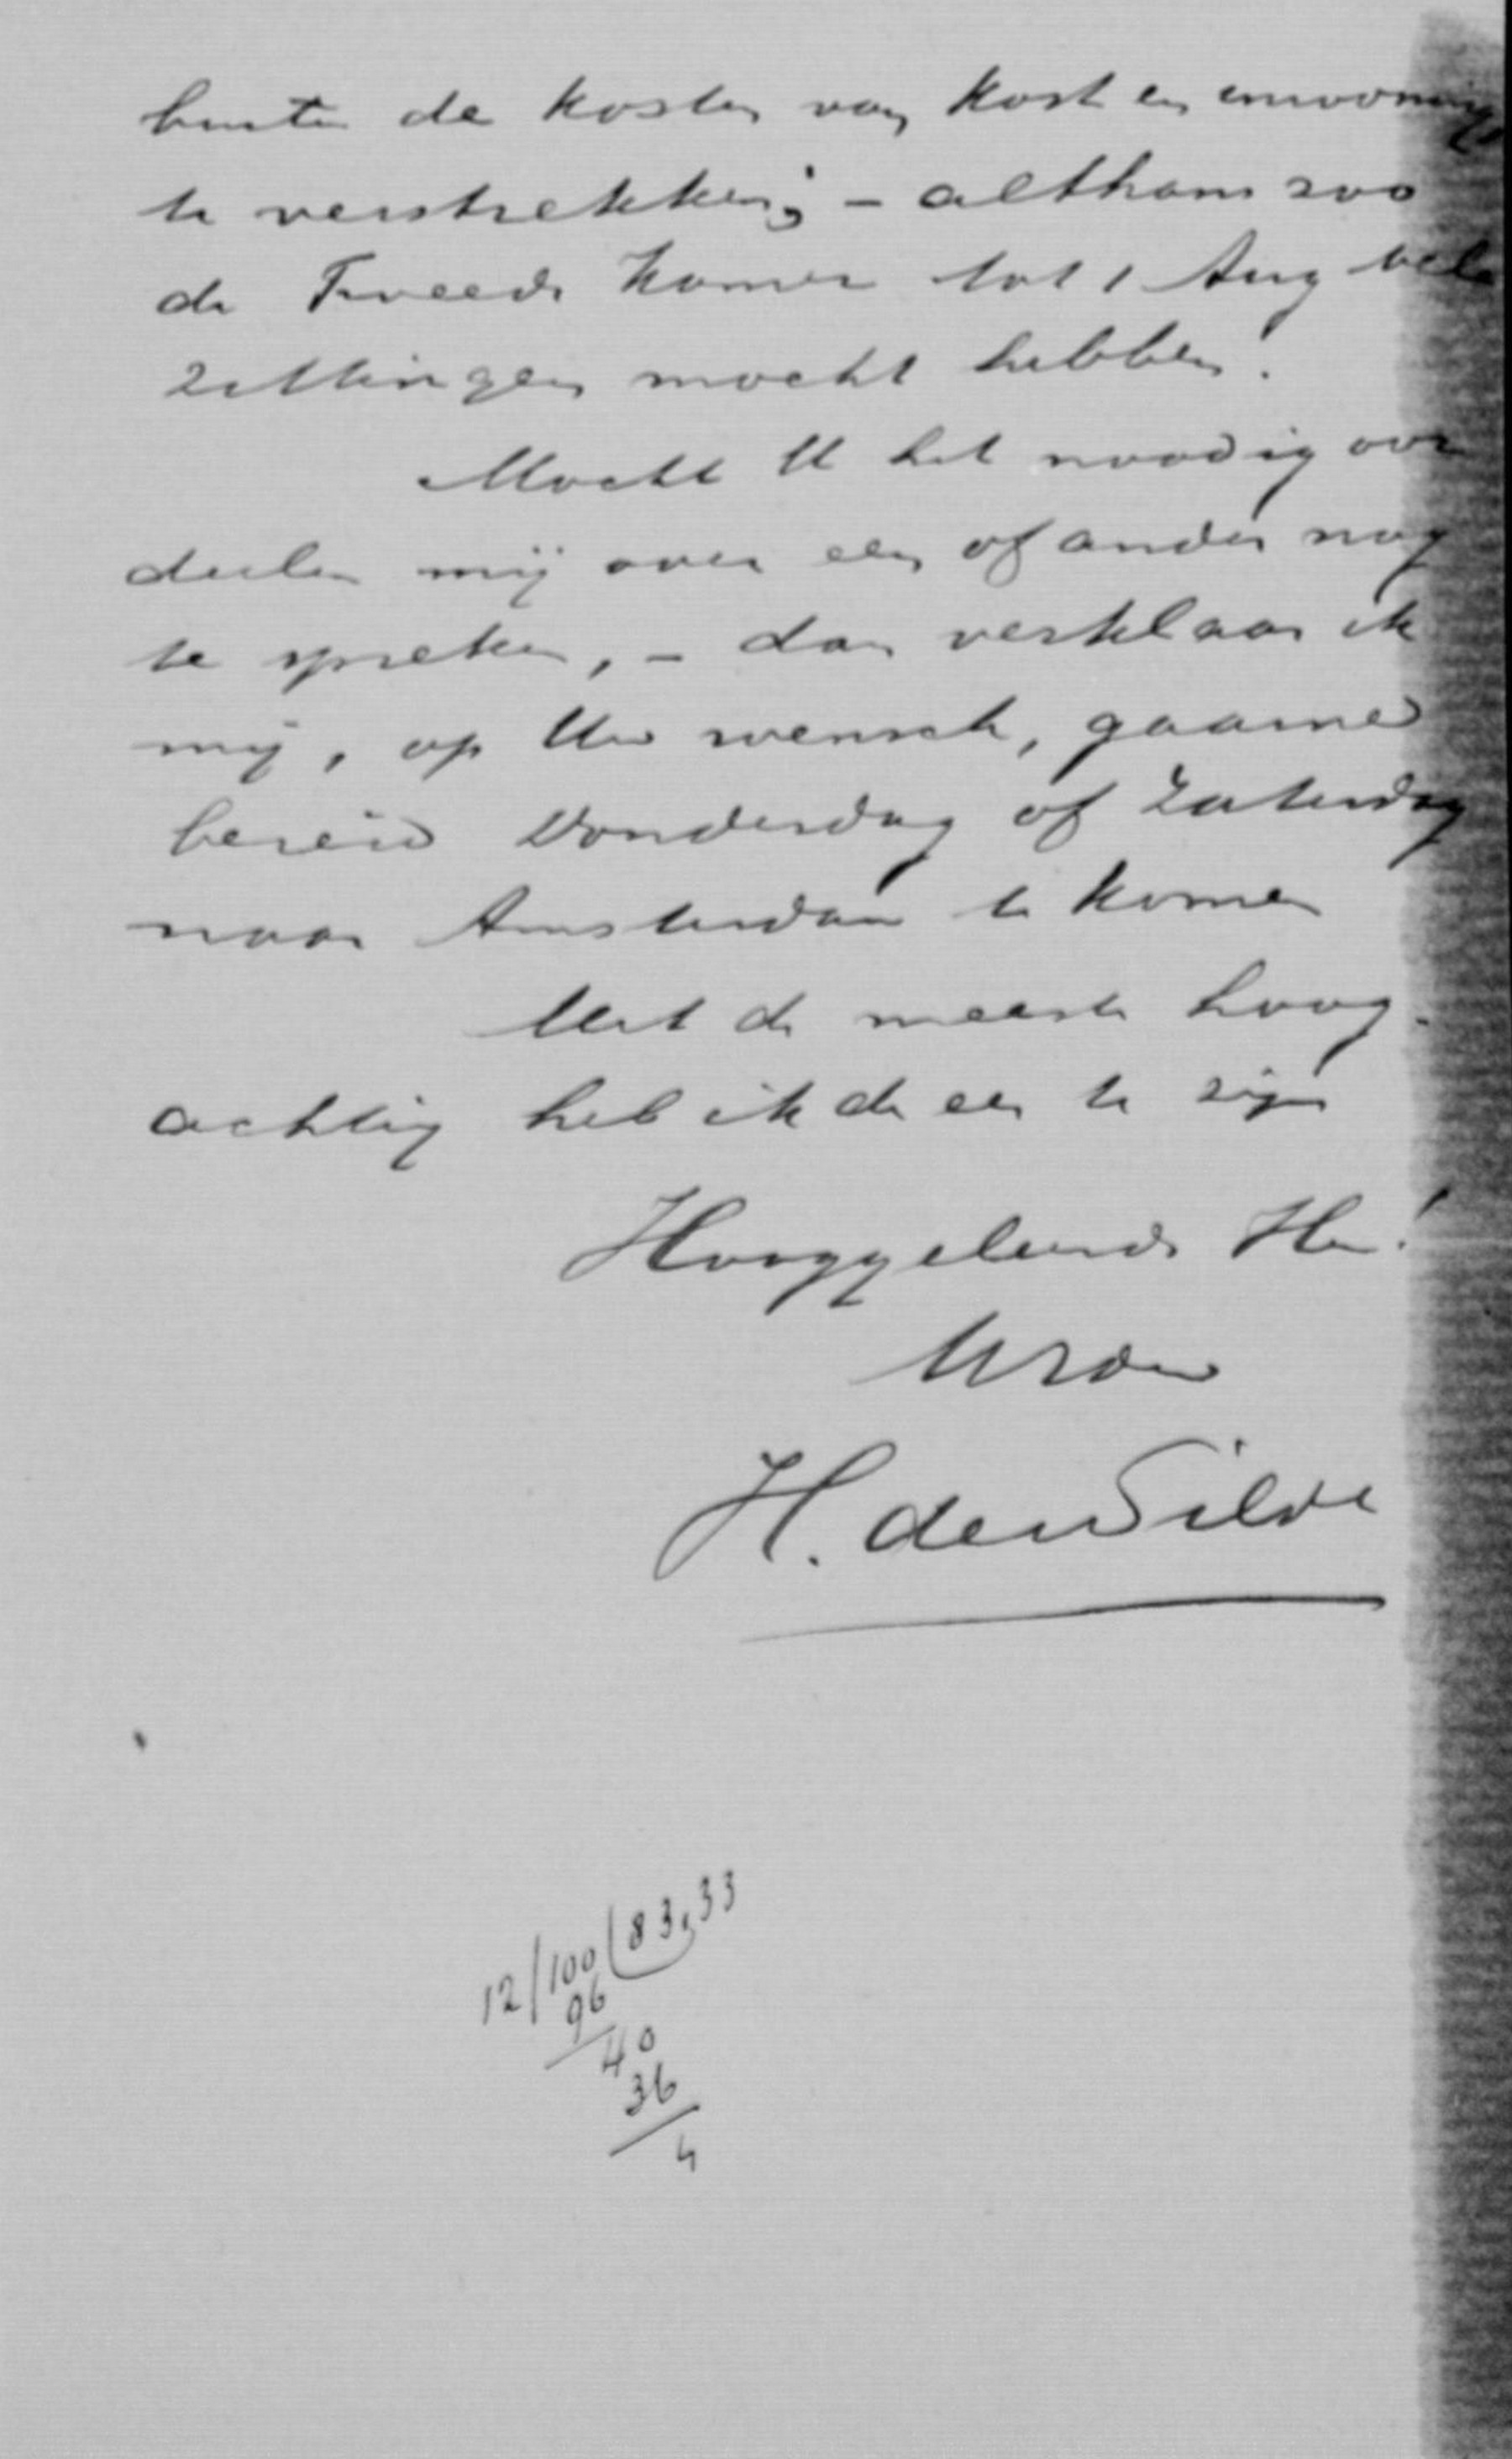 buiten de kosten van kost en inwoning
te verstrekken; – althans zoo
de Tweede Kamer tot 1 Aug vele
zittingen mocht hebben.
Mocht U het noodig oor
deelen mij over een of ander nog
te spreken, – dan verklaar ik
mij, op Uw wensch, gaarne
bereid Donderdag of Zaterdag
naar Amsterdam te komen
Met de meeste hoog-
achting heb ik de eer te zijn
Hooggeleerde Heer!
Uwdw
H. de Wilde
12/100(83,33
96
40
36
4